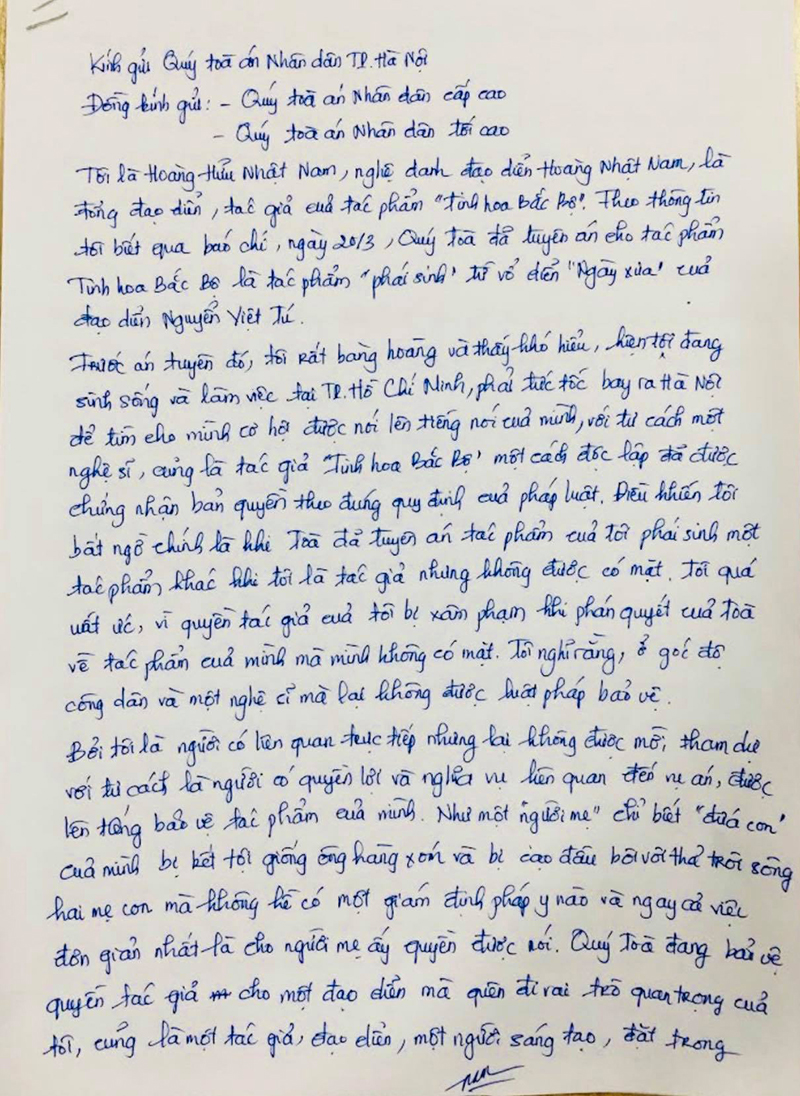 Kính gửi Quý toà án Nhân dân TP. Hà Nội
Đồng kính gửi: - Quý toà án Nhân dân cấp cao
- Quý toà án Nhân dân tối cao
Tôi là Hoàng Hữu Nhật Nam, nghệ danh đạo diễn Hoàng Nhật Nam, là
tổng đạo diễn, tác giả của tác phẩm "Tinh hoa Bắc Bộ". Theo thông tin
tôi biết qua báo chí, ngày 20/3, Quý toà đã tuyên án cho tác phẩm
Tinh hoa Bắc Bộ là tác phẩm "phái sinh" từ vở diễn "Ngày xưa" của
đạo diễn Nguyễn Việt Tú.
Trước án tuyên đó, tôi rất bàng hoàng và thấy khó hiểu, hiện tôi đang
sinh sống và làm việc tại TP. Hồ Chí Minh, phải tức tốc bay ra Hà Nội
để tìm cho mình cơ hội được nói lên tiếng nói của mình, với tư cách một
nghệ sĩ, cũng là tác giả "Tinh hoa Bắc Bộ" một cách độc lập đã được
chứng nhận bản quyền theo đúng quy định của pháp luật. Điều khiến tôi
bất ngờ chính là khi Toà đã tuyên án tác phẩm của tôi phái sinh một
tác phẩm khác khi tôi là tác giả nhưng không được có mặt. Tôi quá
uất ức, vì quyền tác giả của tôi bị xâm phạm khi phán quyết của Toà
về tác phẩm của mình mà mình không có mặt. Tôi nghĩ rằng, ở góc độ
công dân và một nghệ sĩ mà lại không được luật pháp bảo vệ.
Bởi tôi là người có liên quan trực tiếp nhưng lại không được mời, tham dự
với tư cách là người có quyền lợi và nghĩa vụ liên quan đến vụ án, được
lên tiếng bảo vệ tác phẩm của mình. Như một "người mẹ" chỉ biết "đứa con"
của mình bị kết tội giống ông hàng xóm và bị cạo đầu bôi vôi thả trôi sông
hai mẹ con mà không hề có một giám định pháp y nào và ngay cả việc
đơn giản nhất là cho người mẹ ấy quyền được nói. Quý Toà đang bảo vệ
quyền tác giả cho một đạo diễn mà quên đi vai trò quan trọng của
tôi, cũng là một tác giả, đạo diễn, một người sáng tạo, đặt trong